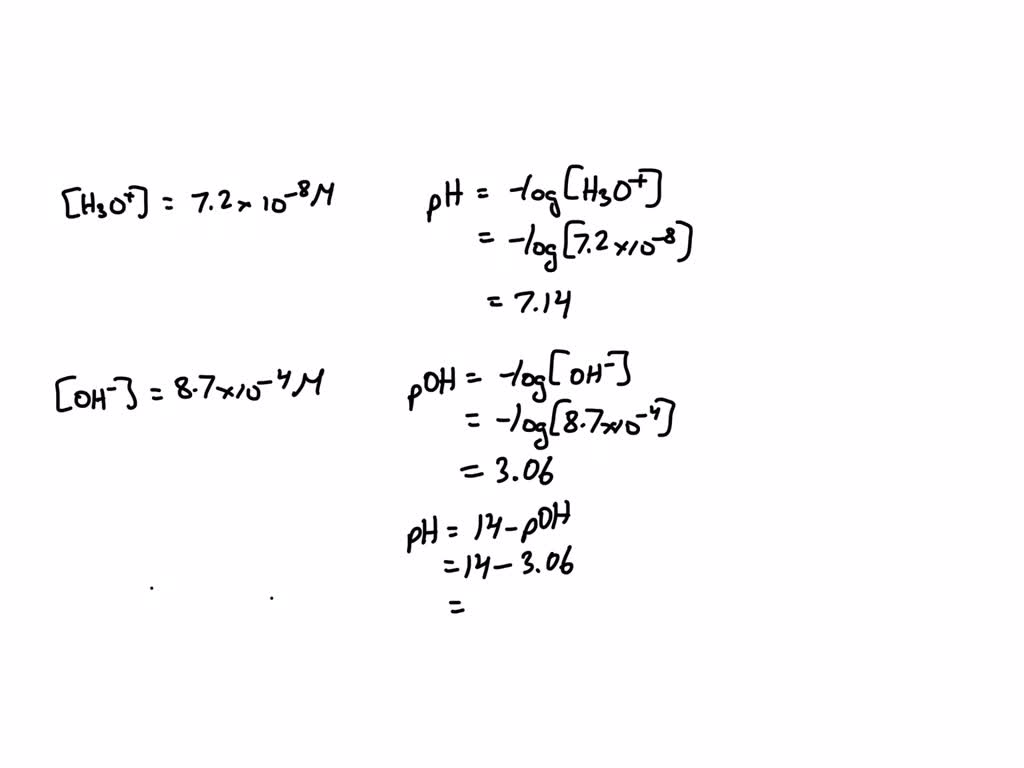 [H₃O⁺] = 7.2 × 10⁻⁸ M
pH = -log[H₃O⁺]
= -log[7.2 × 10⁻⁸]
= 7.14
[OH⁻] = 8.7 × 10⁻⁴ M
pOH = -log[OH⁻]
= -log[8.7 × 10⁻⁴]
= 3.06
pH = 14 - pOH
= 14 - 3.06
=